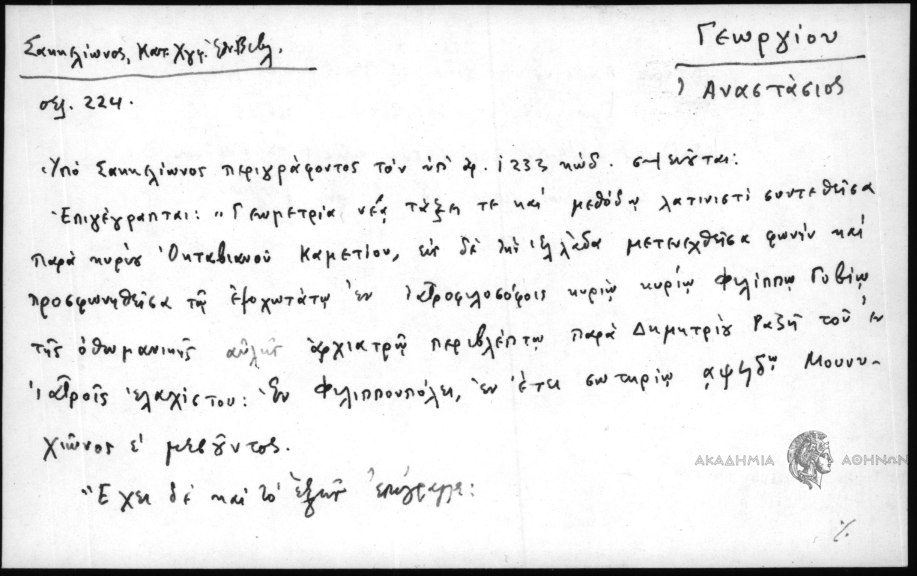 Σακκελίωνος, Κατ. Χγφ. Εθν. Βιβλ.
σελ. 224.
Γεωργίου
Ἀναστάσιος
Ὑπὸ Σακκελίωνος περιγράφοντος τὸν ὑπ' ἀρ. 1233 κώδ. σημειοῦται:
Ἐπιγέγραπται: "Γεωμετρία νέᾳ τάξει τε καὶ μεθόδῳ λατινιστὶ συντεθεῖσα
παρὰ κυρίου Ὀκταβιανοῦ Καμετίου, εἰς δὲ τὴν ἑλλάδα μετενεχθεῖσα φωνὴν καὶ
προσφωνηθεῖσα τῷ ἐξοχωτάτῳ ἐν ἰατροφιλοσόφοις κυρίῳ κυρίῳ Φιλίππῳ Γοβίῳ
τῆς ὀθωμανικῆς αὐλῆς ἀρχιατρῷ περιβλέπτῳ παρὰ Δημητρίου Ραζῆ τοῦ ἐν
ἰατροῖς ἐλαχίστου: Ἐν Φιλιππουπόλει, ἐν ἔτει σωτηρίῳ Μουνυ-
χιῶνος ε' μεσοῦντος.
"Ἔχει δὲ καὶ τὸ ἑξῆς ἐπίγραμμα:
ΑΚΑΔΗΜΙΑ ΑΘΗΝΩΝ
%